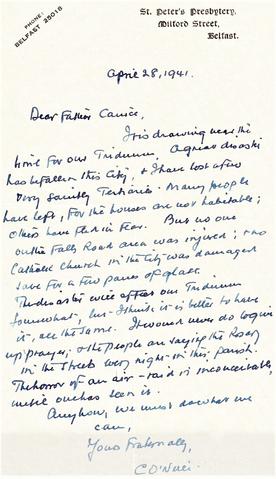 PHONE:
BELFAST 25016
St. Peter's Presbytery,
Milford Street,
Belfast.
April 28, 1941.
Dear Father Canice,
It is drawing near the
time for our Triduum. A grievous disaster
has befallen this City, & I have lost a few
very saintly Tertiaries. Many people
have left, for the houses are not habitable;
others have fled in fear. But no one
in the Falls Road area was injured; & no
Catholic Church in the City was damaged
save for a few panes of glass.
This disaster will affect our Triduum
somewhat, but I think it is better to have
it, all the same. It would never do to give
up prayer; & the people are saying the Rosary
in the streets every night in this parish.
The horror of an air-raid is inconceivable,
until one has seen it.
Anyhow, we must do what we
can,
Yours Fraternally,
C O'Neill.